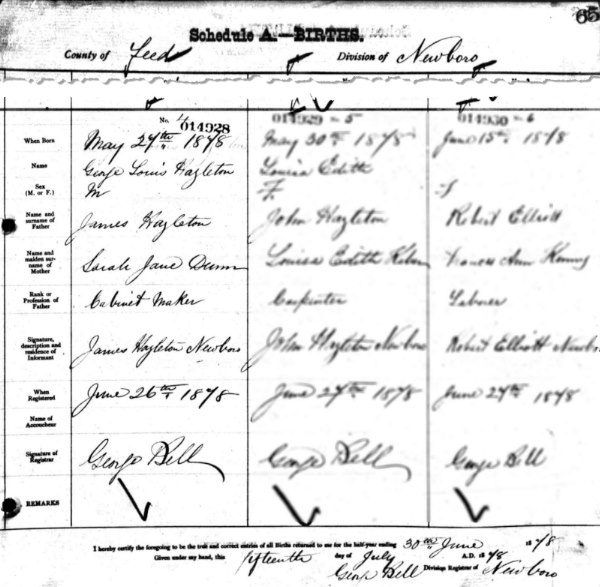 65
Schedule A.—BIRTHS.
County of Leeds Division of Newboro
No. 4 014928 014929 - 5 014930 - 6
When Born May 27th 1878 May 30th 1878 June 15th 1878
Name George Louis Hazleton Louisa Edith
Sex (M. or F.) M F. f
Name and surname of Father James Hazleton John Hazleton Robert Elliott
Name and maiden surname of Mother Sarah Jane Dunn Louisa Edith Frances Ann
Rank or Profession of Father Cabinet Maker Carpenter Laborer
Signature, description and residence of Informant James Hazleton Newboro John Hazleton Newboro Robert Elliott Newboro
When Registered June 26th 1878 June 27th 1878 June 27th 1878
Name of Accoucheur
Signature of Registrar George Bell George Bell George Bell
REMARKS
I hereby certify the foregoing to be the true and correct entries of all Births returned to me for the half-year ending 30th June 1878
Given under my hand, this fifteenth day of July A.D. 1878
George Bell Division Registrar of Newboro